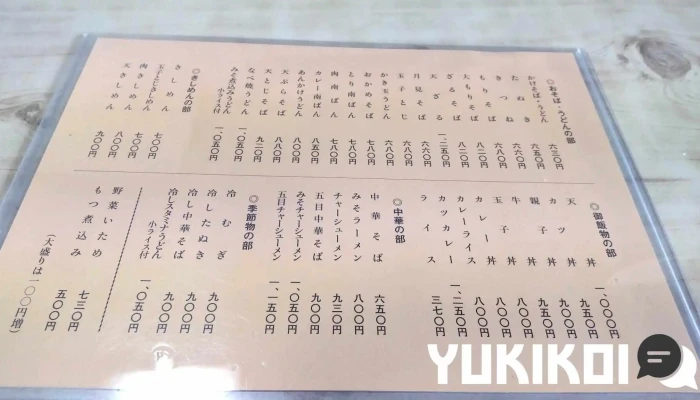 ◎おそば・うどんの部
かけそば・うどん 六三〇円
たぬき 六五〇円
きつね 六八〇円
もりそば 六八〇円
大もりそば 八二〇円
ざるそば 八二〇円
天ざる 一、二五〇円
月見そば 六六〇円
玉子とじ 六六〇円
かき玉うどん 六八〇円
おかめそば 七八〇円
とり南ばん 七八〇円
肉南ばん 七八〇円
カレー南ばん 八五〇円
あんかけうどん 八八〇円
天ぷらそば 八八〇円
天とじそば 九二〇円
なべ焼うどん 一、〇五〇円
みそ煮込みうどん 小ライス付 一、〇五〇円
◎きしめんの部
きしめん 七〇〇円
玉子とじきしめん 七〇〇円
肉きしめん 八〇〇円
天きしめん 九〇〇円
◎御飯物の部
天丼 一、〇〇〇円
カツ丼 九五〇円
親子丼 九〇〇円
牛丼 九五〇円
玉子丼 八〇〇円
カレー丼 八〇〇円
カレーライス 八〇〇円
カツカレー 一、二五〇円
ライス 三七〇円
◎中華の部
中華そば 六五〇円
みそラーメン 八〇〇円
チャーシューメン 九三〇円
五目中華そば 九〇〇円
みそチャーシューメン 一、〇五〇円
五目チャーシューメン 一、一五〇円
◎季節物の部
冷むぎ 九〇〇円
冷したぬき 九〇〇円
冷し中華そば 九〇〇円
冷しスタミナうどん 小ライス付 一、〇五〇円
野菜いため 七三〇円
もつ煮込み 五〇〇円
(大盛りは一〇〇円増)
YUKIKOI